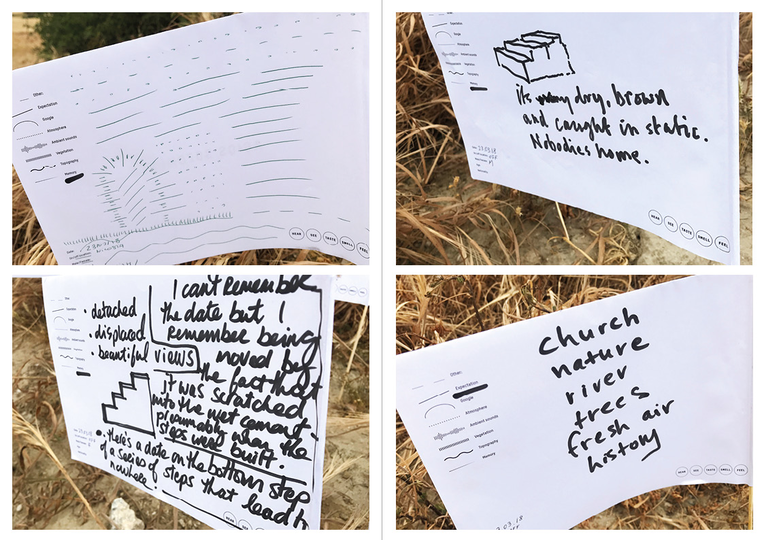 Other:
Expectation
Google
Atmosphere
Ambient sounds
Vegetation
Topography
Memory
HEAR
SEE
TASTE
SMELL
FEEL
Its dry, brown
and caught in static.
Nobodies home.
Vegetation
Topography
Memory
HEAR
SEE
TASTE
SMELL
FEEL
• detached
• displaced
• beautiful views
I can't remember
the date but I
remember being
moved by
the fact that
it was scratched
into the wet cement
presumably when the
steps were built.
• there's a date on the bottom step
of a series of steps that lead to
nowhere.
HEAR
Other:
Expectation
Google
Atmosphere
Ambient sounds
Vegetation
Topography
Memory
church
nature
river
trees
fresh air
history
HEAR
SEE
TASTE
SMELL
FEEL